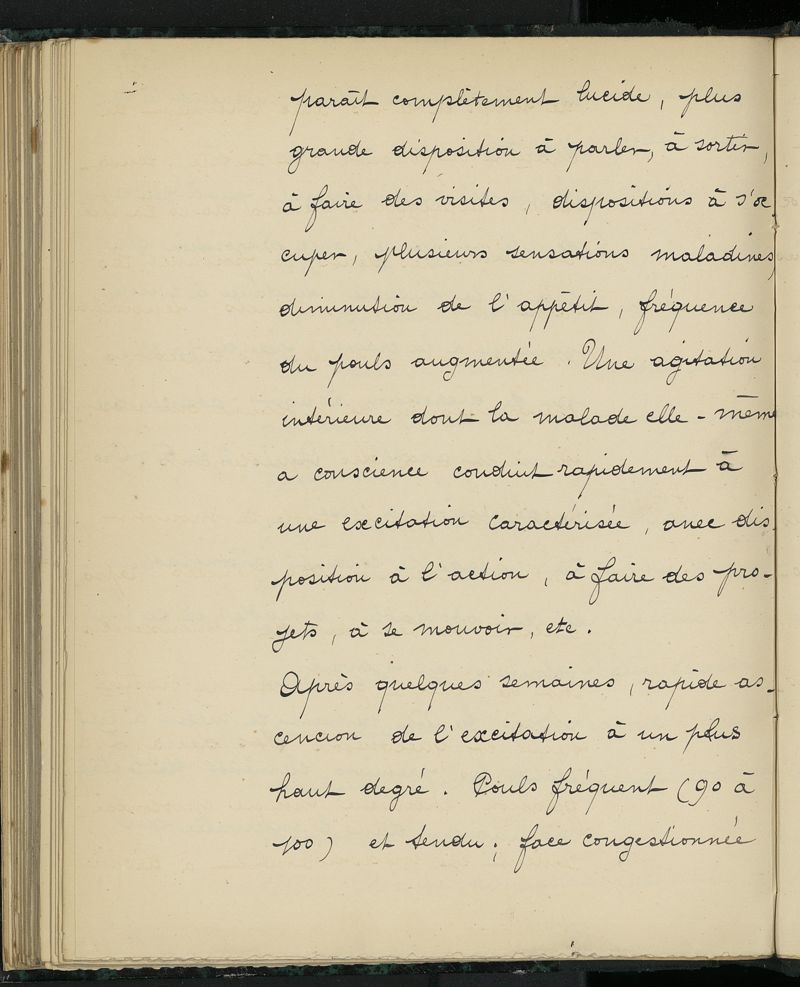 paraît complètement lucide, plus
grande disposition à parler, à sortir,
à faire des visites, dispositions à s'oc
cuper, plusieurs sensations maladines,
diminution de l'appétit, fréquence
du pouls augmentée. Une agitation
intérieure dont la malade elle-même
a conscience conduit rapidement à
une excitation caractérisée, avec dis
position à l'action, à faire des pro-
jets, à se mouvoir, etc.
Après quelques semaines, rapide as-
cencion de l'excitation à un plus
haut degré. Pouls fréquent (90 à
100) et tendu; face congestionnée